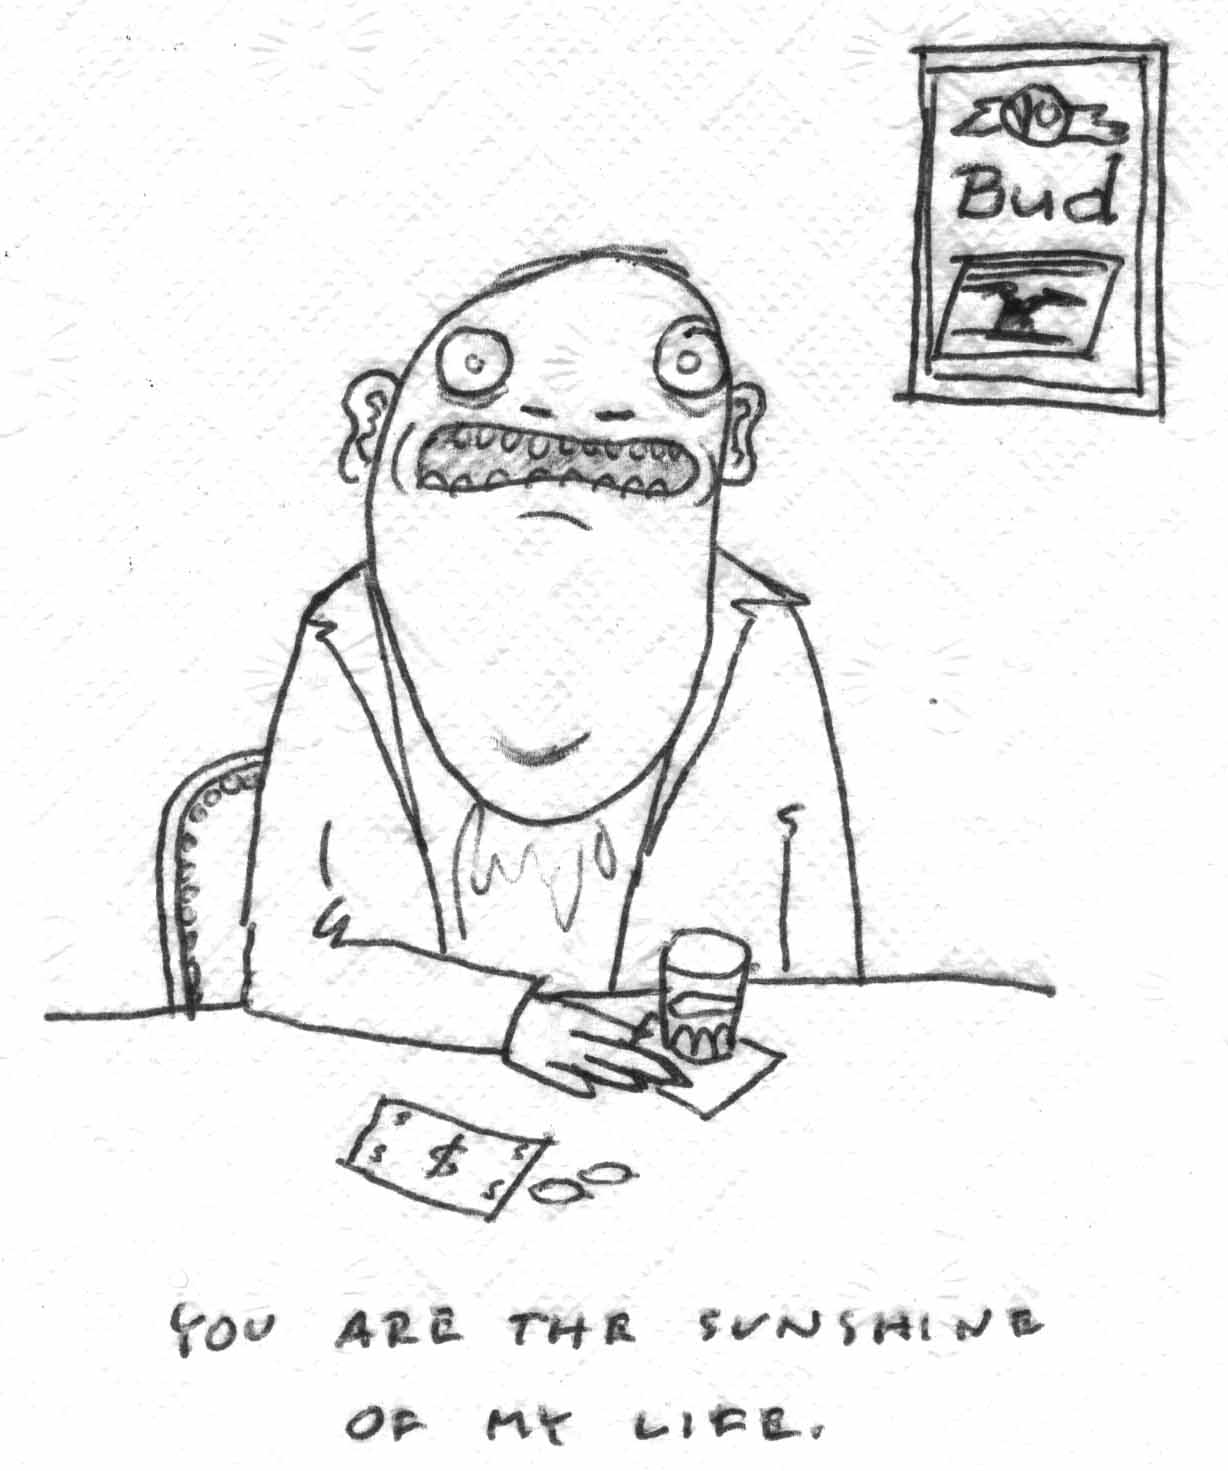 Bud
$
YOU ARE THE SUNSHINE
OF MY LIFE.